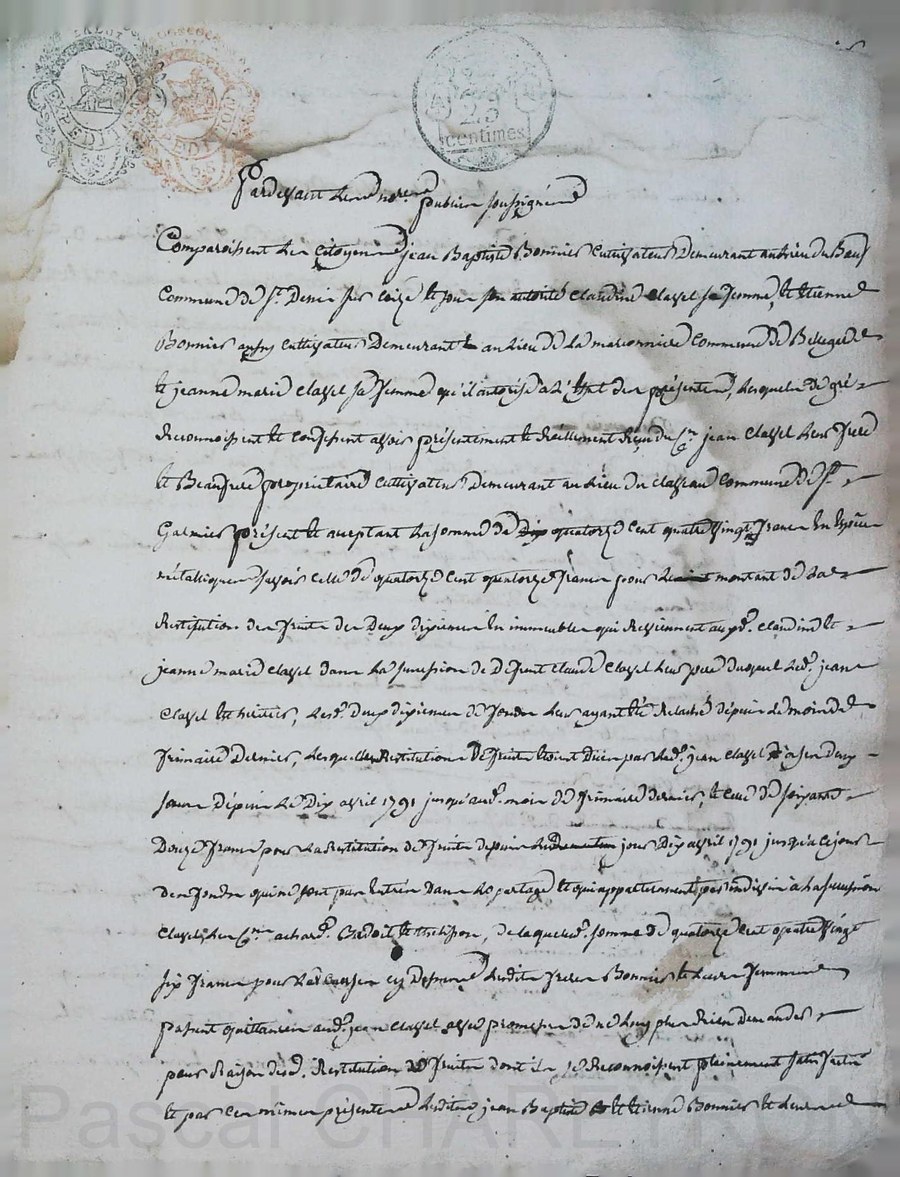 EXPEDITION
EXPEDITION
25
centimes
Pardevant les no.res publics soussignés
Comparoissent les Citoyens jean Baptiste Bonnier Cultivateur Demeurant au lieu du
Commune de St. Denis sur Coize et pour son autorité Claudine Clavel sa femme, et Etienne
Bonnier aussy Cultivateur Demeurant au Lieu de La marconniere Commune de Bellegarde
et jeanne marie Clavel sa femme qu'il autorise a l'effet des présentes, Lesquels de gré
Reconnoissent et Confessent avoir présentement et Réellement Reçu du Cn. jean Clavel Leur frere
et Beaufrere propriétaire Cultivateur Demeurant au Lieu du Claveau Commune de St.
Galmier présent et acceptant La somme de quatorze Cent quatre vingt francs En Espèces
métalliques sçavoir Celle de quatorze Cent quatorze francs pour montant de La
Restitution des fruits des Deux dixiemes En immeubles qui Reviennent auxd. Claudine et
jeanne marie Clavel dans La succession de Defunt Claude Clavel Leur pere duquel Led. jean
Clavel Est héritier, Lesd. Deux dixiemes de fonds Leur ayant été Relaché depuis Le mois de
frimaire Dernier, Lesquelles Restitutions de fruits Etoient Dües par Led. jean Clavel a ses deux
sœurs depuis Le Dix avril 1791 jusqu'aud. mois de frimaire dernier, et Celle de soixante
Douze francs pour La Restitution de fruits depuis jour Dix avril 1791 jusqu'a Ce jour
des fonds qui ne sont pas Entrés Dans Le partage et qui appartiennent par indivis à La succession
Clavel, Les Cns. achard, Bedoit et thelisson, de laquelle. somme de quatorze Cent quatre vingt
six francs pour Les Causes Cy Dessus Lesdits freres Bonnier et Leurs femmes
passent quittances aud. jean Clavel avec promesse de ne Luy plus Rien Demander
pour Raison desd. Restitution de fruits dont ils se Reconnoissent pleinement satisfaits
et par Ces mêmes présentes Lesdits jean Baptiste et Etienne Bonnier et Leurs
Pascal CHAREYRON